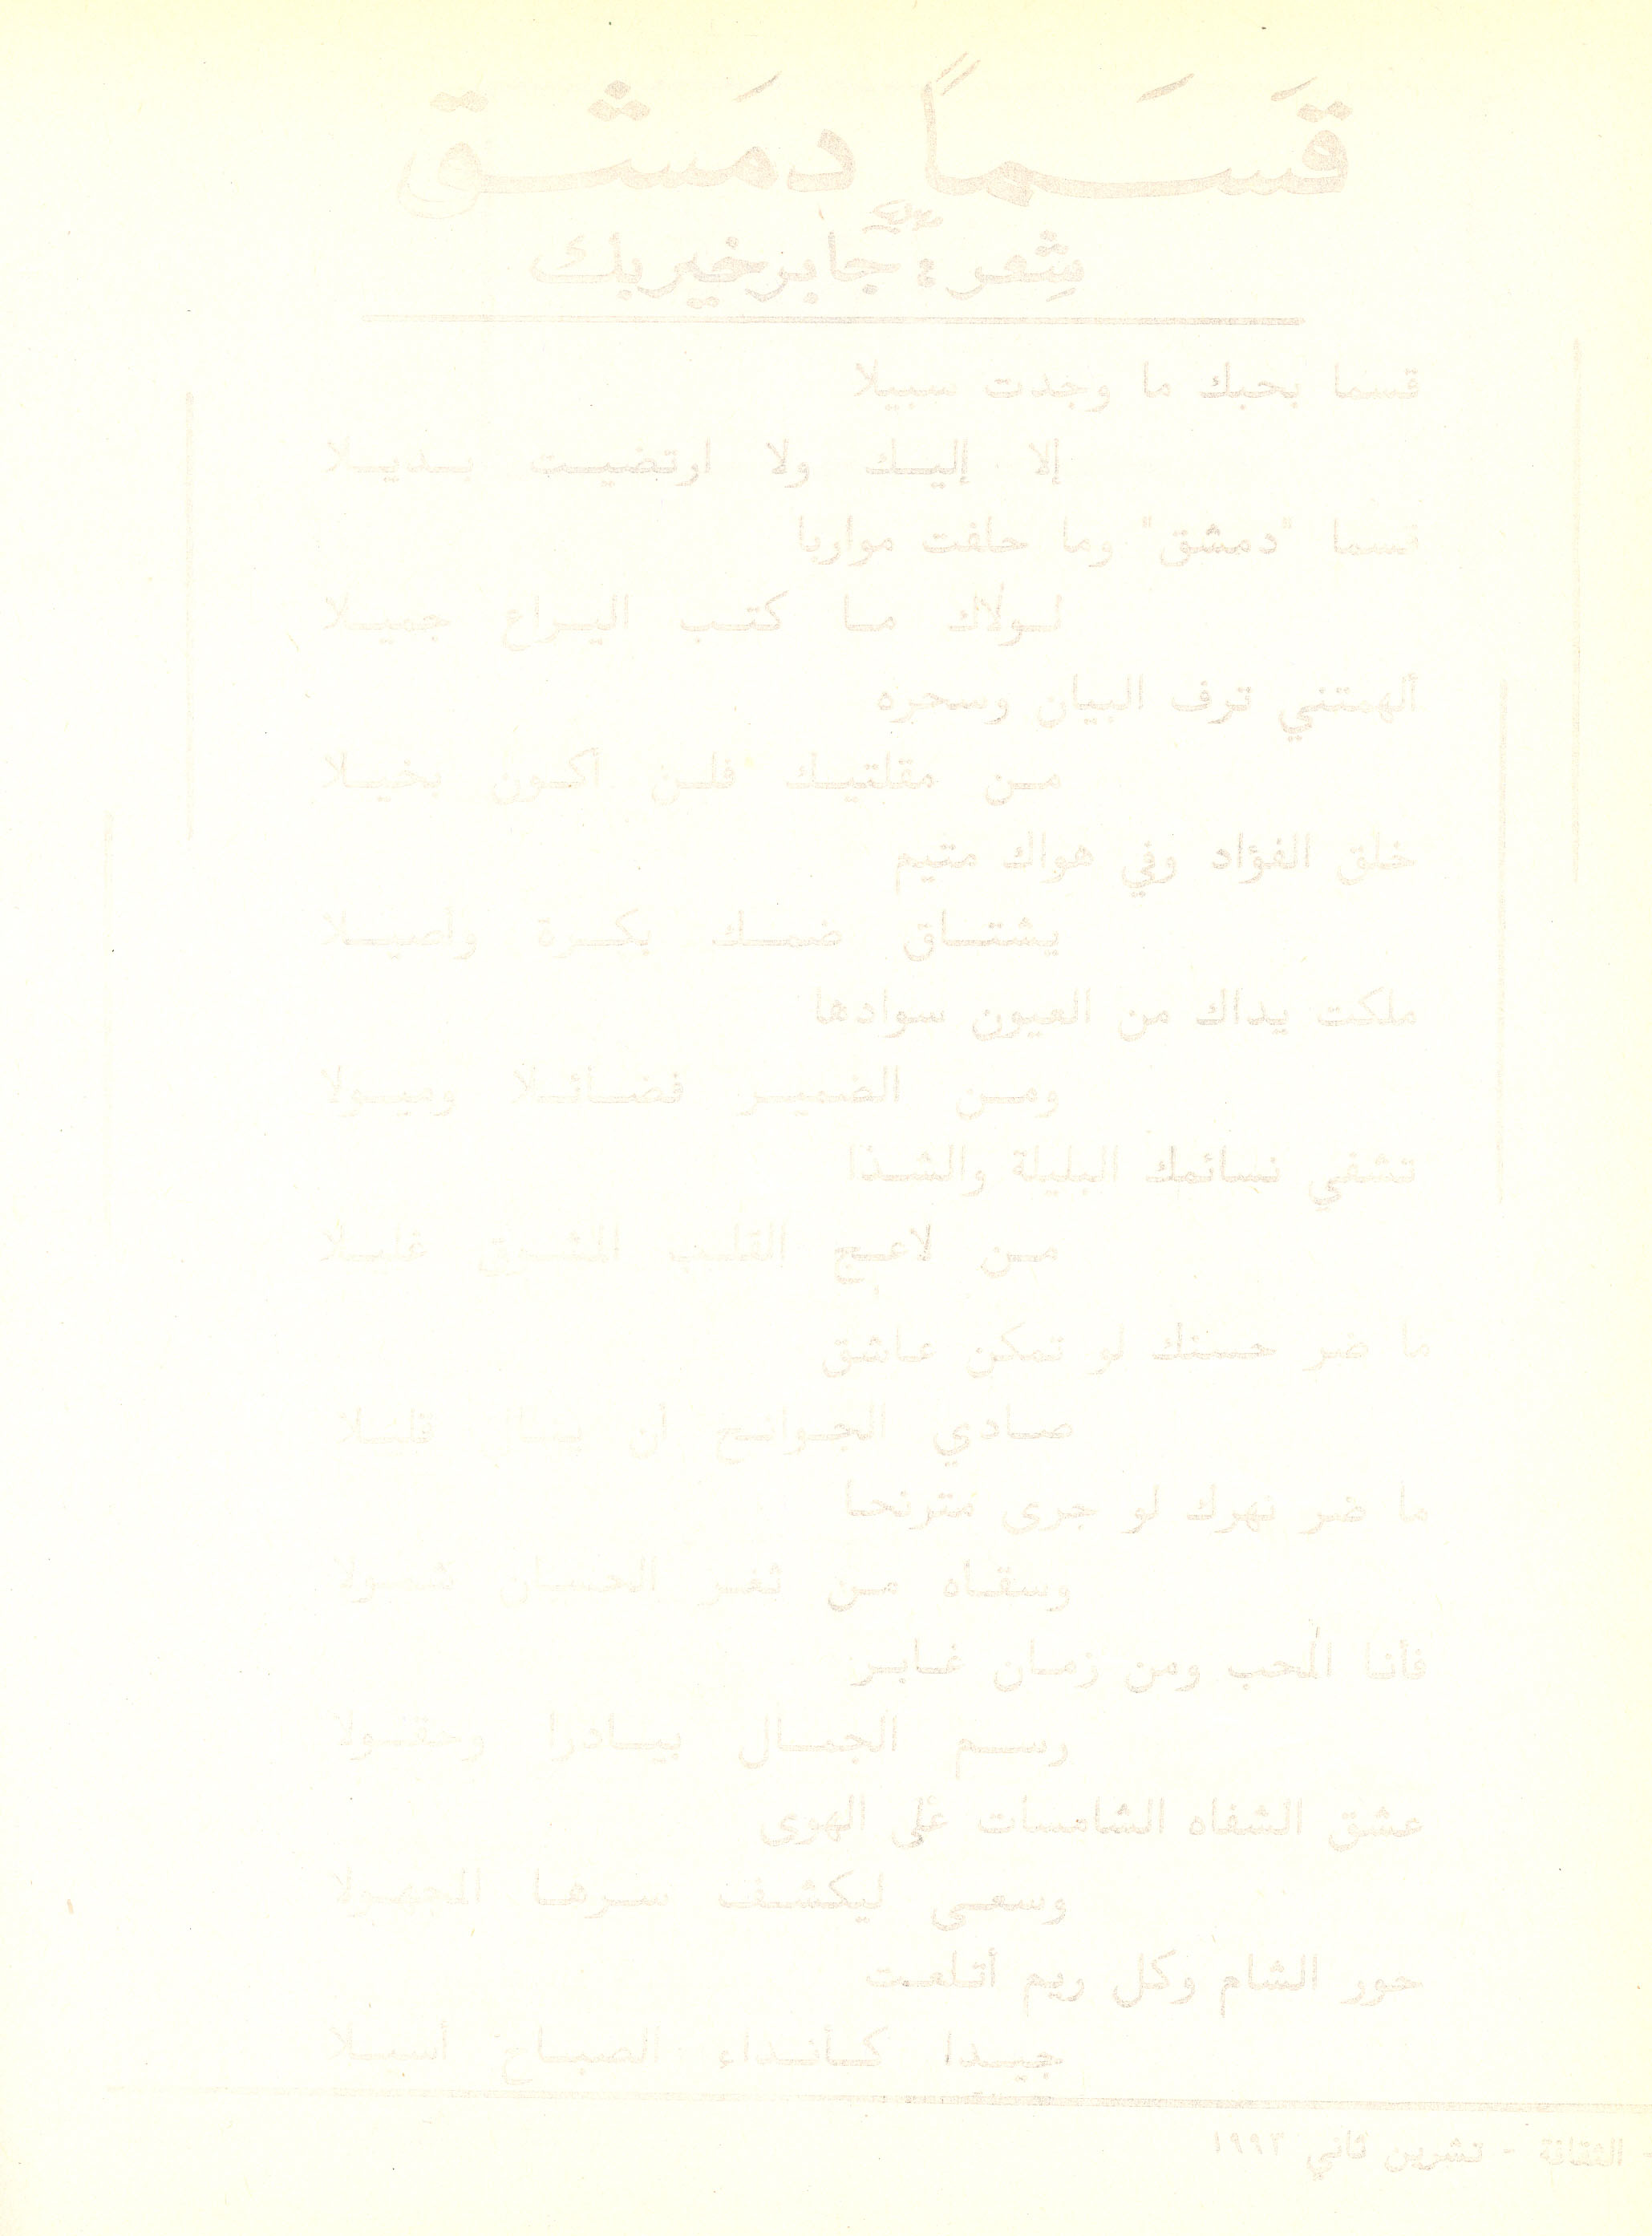 قَسَماً دمَشق
شِعر : جابر خير بك
قسما بحبك ما وجدت سبيلا
إلا إليك ولا ارتضيت بديلا
قسما "دمشق" وما حلفت مواربا
لولاك ما كتب اليراع جميلا
ألهمتني ترف البيان وسحره
من مقلتيك فلن أكون بخيلا
خلق الفؤاد وفي هواك متيم
يشتاق ضمك بكرة وأصيلا
ملكت يداك من العيون سوادها
ومن الضمير فضائلا وميولا
تشفي نسائمك البليلة والشذا
من لاعج القلب المشوق غليلا
ما ضر حسنك لو تمكن عاشق
صادي الجوانح أن ينال قليلا
ما ضر نهرك لو جرى مترنحا
وسقاه من ثغر الحسان شمولا
فأنا المحب ومن زمان غابر
رسم الجمال بيادرا وحقولا
عشق الشفاه الشامسات على الهوى
وسعى ليكشف سرها المجهولا
حور الشام وكل ريم أتلعت
جيدا كأنداء الصباح أسيلا
- الثقافة - تشرين ثاني ١٩٩٣